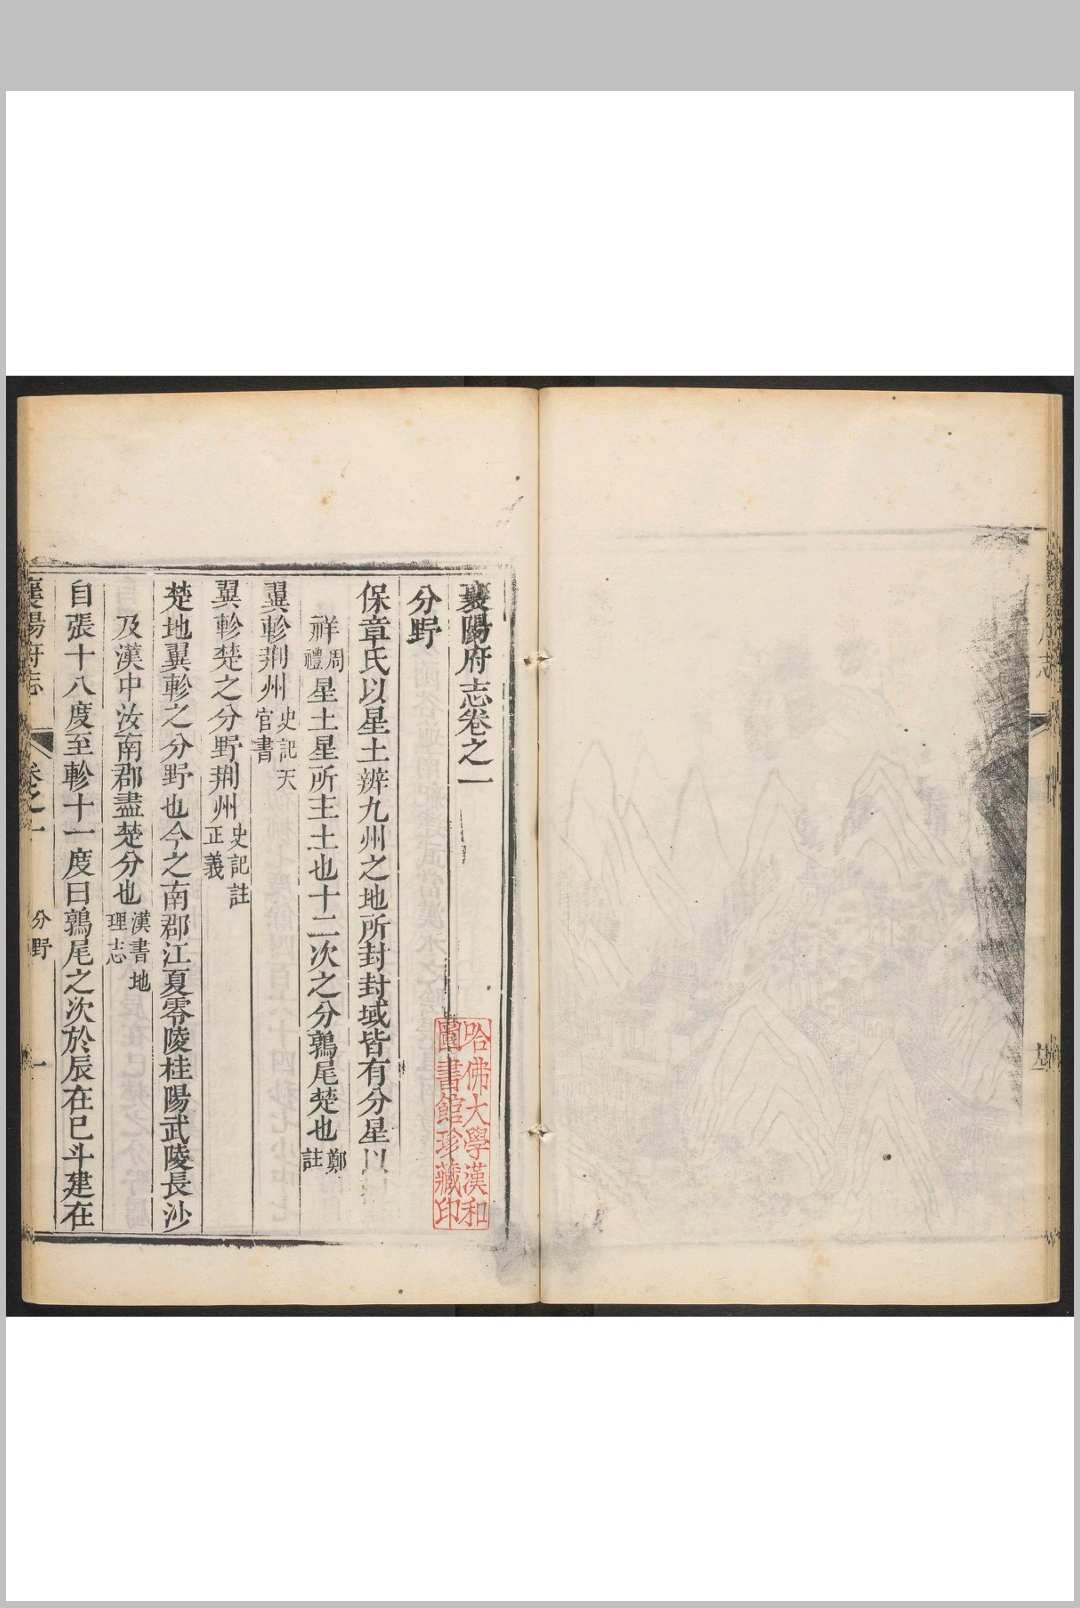 襄陽府志卷之一
分野
保章氏以星土辨九州之地所封封域皆有分星以
祥周禮星土星所主土也十二次之分鶉尾楚也鄭註
翼軫荆州史記天官書
翼軫楚之分野荆州史記註正義
楚地翼軫之分野也今之南郡江夏零陵桂陽武陵長沙
及漢中汝南郡盡楚分也漢書地理志
自張十八度至軫十一度曰鶉尾之次於辰在巳斗建在
襄陽府志 卷之一 分野 一
哈佛大學漢和
圖書館珍藏印